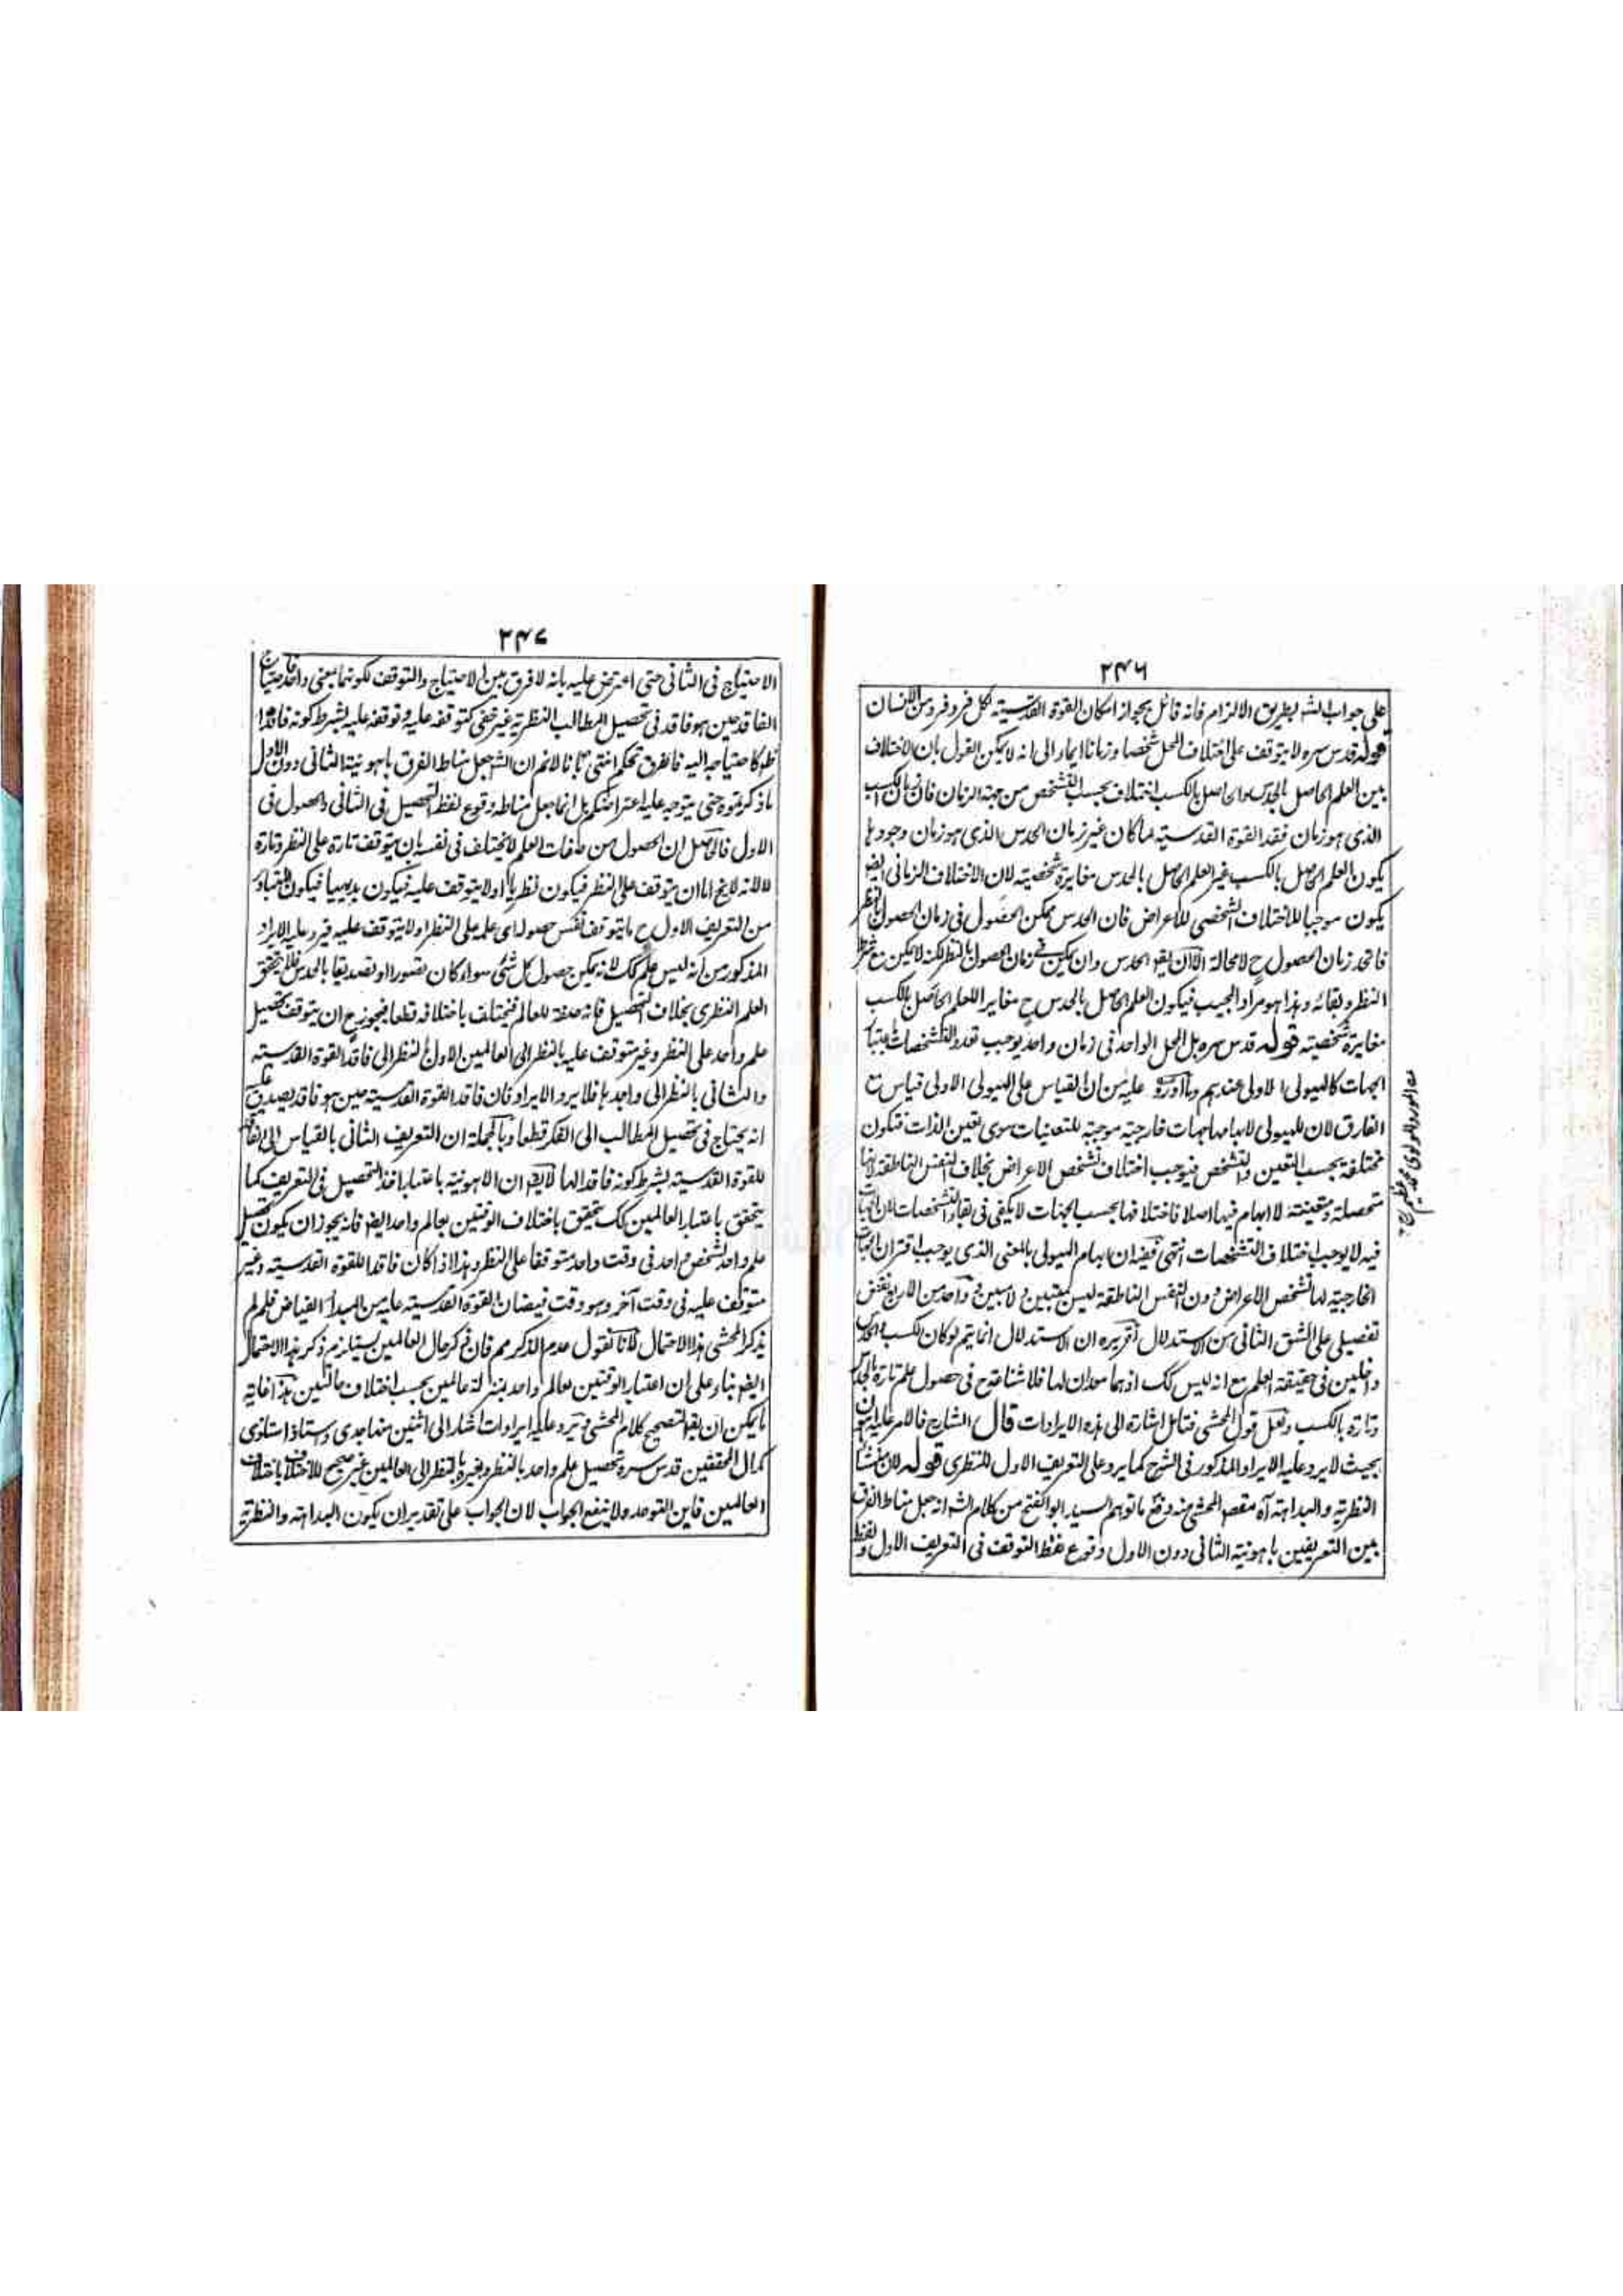 ٢٤٦
على جواب الشه بطريق الالزام فانه قائل بجواز امكان القوة القدسية لكل فرد فرد من الانسان
قوله قدس سره لا يتوقف على اختلاف المحل شخصا وزمانا ايماء الى انه لا يمكن القول بان الاختلاف
بين العلم الحاصل بالحدس والحاصل بالكسب اختلاف بحسب التشخص من جهة الزمان فان زمان الكسب
الذى هو زمان فقد القوة القدسية لما كان غير زمان الحدس الذى هو زمان وجودها
يكون العلم الحاصل بالكسب غير العلم الحاصل بالحدس مغايرة شخصية لان الاختلاف الزمانى ايضا
يكون موجبا للاختلاف الشخصى للاعراض فان الحدس ممكن الحصول فى زمان الحصول بالنظر
فاتحد زمان الحصول ح لا محالة الا ان يقو الحدس وان يمكن فى زمان الحصول بالنظر لكنه لا يمكن مع شرط
النظر وبقائه وهذا هو مراد المجيب فيكون العلم الحاصل بالحدس ح مغايرا للعلم الحاصل بالكسب
مغايرة شخصية قوله قدس سره بل المحل الواحد فى زمان واحد يوجب تعدد التشخصات باعتبار
الجهات كالهيولى الاولى عندهم وما اورد عليه من ان القياس على الهيولى الاولى قياس مع
الفارق لان للهيولى لابهامها جهات خارجية موجبة للتعينات سوى تعين الذات فتكون
مختلفة بحسب التعين والتشخص فيوجب اختلاف تشخص الاعراض بخلاف النفس الناطقة لانها
متحصلة ومتعينة لا ابهام فيها اصلا فاختلافها بحسب الجهات لا يكفى فى بقاء التشخصات لان الجهات
فيه لا يوجب اختلاف التشخصات انتهى ففيه ان ابهام الهيولى بالمعنى الذى يوجب اقتران الجهات
الخارجية لها تشخص الاعراض دون النفس الناطقة ليس ببين ولا مبين وواحد من الاربع نقض
تفصيلى على الشق الثانى من الاستدلال تقريره ان الاستدلال انما يتم لو كان الكسب والحدس
داخلين فى حقيقة العلم مع انه ليس كك اذ هما معدان لها فلا شناعة ح فى حصول علم تارة بالحدس
وتارة بالكسب ولعل قول المحشى فتامل اشارة الى هذه الايرادات قال الشارح فالامر عليه اهون
بحيث لا يرد عليه الايراد المذكور فى الشرح كما يرد على التعريف الاول للنظرى قوله لان منشأ
النظرية والبداهة اه مقصد المحشى منه دفع ما توهم السيد ابو الفتح من كلام الشه انه جعل مناط الفرق
بين التعريفين باهونية الثانى دون الاول وقوع لفظ التوقف فى التعريف الاول ولفظ
٢٤٧
الاحتياج فى الثانى حتى اعترض عليه بانه لا فرق بين الاحتياج والتوقف لكونهما بمعنى واحد فاحتياج
الفاقد حين هو فاقد فى تحصيل المطالب النظرية غير خفى كتوقفه عليه وتوقفه عليه بشرط كونه فاقدا
ظاهر كاحتياجه اليه فالفرق تحكم انتهى بانا لا نم ان الشه جعل مناط الفرق باهونية الثانى دون الاول
ما ذكرتموه حتى يتوجه عليه اعتراضكم بل انما جعل مناطه وقوع لفظ التحصيل فى الثانى والحصول فى
الاول فالحاصل ان الحصول من صفات العلم لا يختلف فى نفسه بان يتوقف تارة على النظر وتارة
لا لانه لا يخ اما ان يتوقف على النظر فيكون نظريا او لا يتوقف عليه فيكون بديهيا فيكون المتبادر
من التعريف الاول ح ما يتوقف نفس حصوله اى علمه على النظر او لا يتوقف عليه فيرد عليه الايراد
المذكور من انه ليس علم كك لانه يمكن حصول كل شئ سواء كان تصورا او تصديقا بالحدس فلم يتحقق
العلم النظرى بخلاف التحصيل فانه صفة للعالم فيختلف باختلافه قطعا فيجوز ح ان يتوقف تحصيل
علم واحد على النظر وغير متوقف عليه بالنظر الى العالمين الاول بالنظر الى فاقد القوة القدسية
والثانى بالنظر الى واجدها فلا يرد الايراد فان فاقد القوة القدسية حين هو فاقد يصدق عليه
انه يحتاج فى تحصيل المطالب الى الفكر قطعا وبالجملة ان التعريف الثانى بالقياس الى الفاقد
للقوة القدسية بشرط كونه فاقدا لها لا يقو ان الاهونية باعتبار اخذ التحصيل فى التعريف كما
يتحقق باعتبار العالمين كك يتحقق باختلاف الوقتين بعالم واحد ايضا فانه يجوز ان يكون تحصيل
علم واحد لشخص واحد فى وقت واحد متوقفا على النظر وهذا اذا كان فاقدا للقوة القدسية وغير
متوقف عليه فى وقت آخر وهو وقت فيضان القوة القدسية عليه من المبدأ الفياض فلم لم
يذكر المحشى هذا الاحتمال لانا نقول عدم الذكر مم فان ذكر حال العالمين يستلزم ذكر هذا الاحتمال
ايضا بناء على ان اعتبار الوقتين بعالم واحد بمنزلة عالمين بحسب اختلاف حالتين هذا غاية
ما يمكن ان يقو لتصحيح كلام المحشى ويرد عليه ايرادات اشار الى اثنين منها جدى واستاذ استاذى
كمال المحققين قدس سره تحصيل علم واحد بالنظر وبغيره بالنظر الى العالمين غير صحيح للاختلاف باختلاف
العالمين فاين التوحد ولا ينفع الجواب لان الجواب على تقدير ان يكون البداهة والنظرية